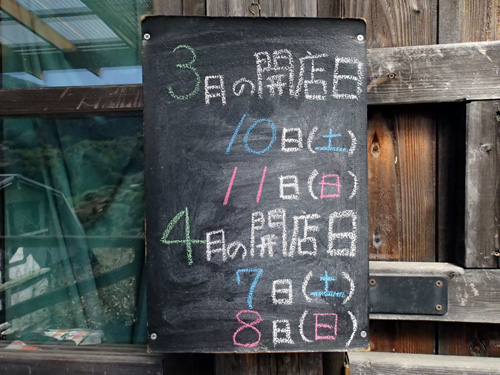 3月の開店日
10日(土)
11日(日)
4月の開店日
7日(土)
8日(日)